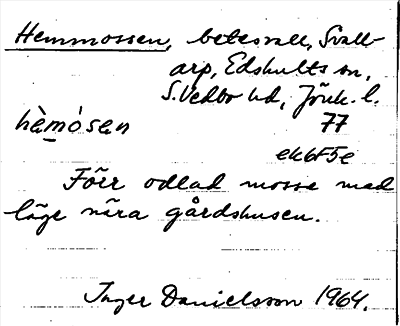 Hemmossen, betesvall, Svall-
arp, Edshults sn,
S. Vedbo hd, Jönk. l.
hèmósen 77
ek6F5e
Förr odlad mosse med
läge nära gårdshusen.
Inger Danielsson 1964.